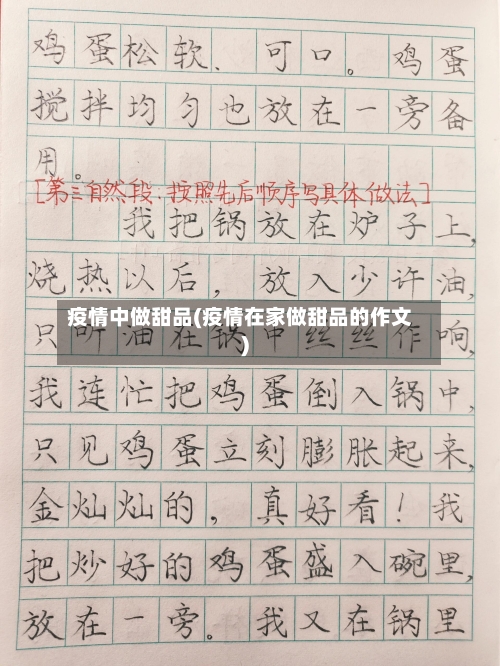 鸡蛋松软、可口。鸡蛋
搅拌均匀也放在一旁备
用。
[第三自然段:按照先后顺序写具体做法]
我把锅放在炉子上,
烧热以后,放入少许油,
疫情中做甜品(疫情在家做甜品的作文
)
只听油在锅中丝丝作响,
我连忙把鸡蛋倒入锅中,
只见鸡蛋立刻膨胀起来,
金灿灿的,真好看!我
把炒好的鸡蛋盛入碗里,
放在一旁。我又在锅里